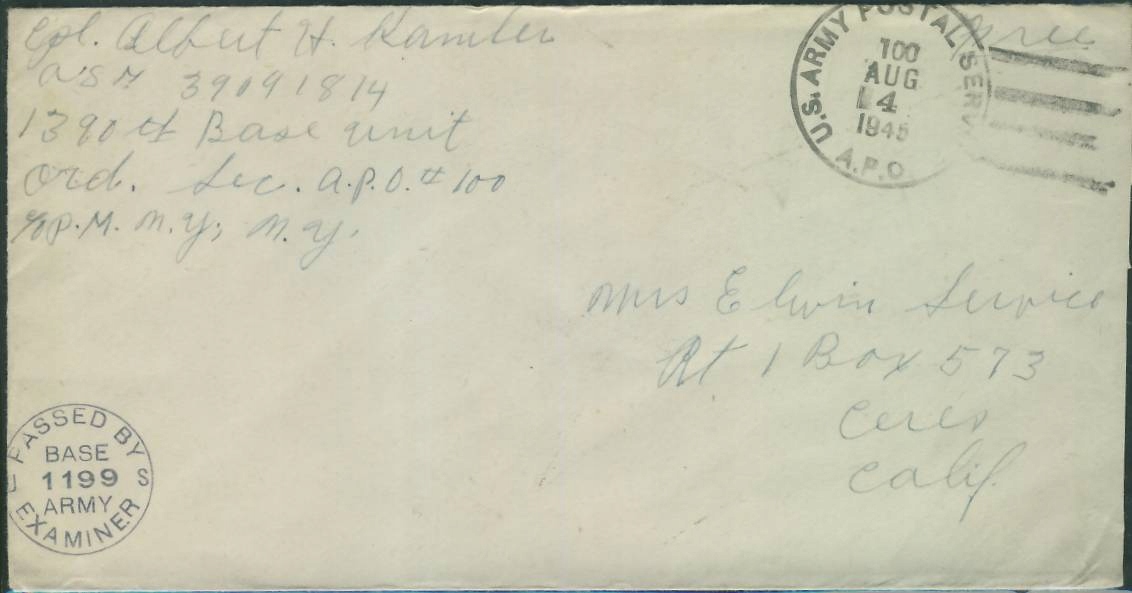 Cpl. Albert H. Kamler
ASN 39091814
1390th Base Unit
Ord. Sec. A.P.O. # 100
c/o P.M. N.Y., N.Y.
Free
U.S. ARMY POSTAL SERV.
100
AUG
4
1945
A.P.O.
Mrs Elwin Service
Rt 1 Box 573
Ceres
Calif.
PASSED BY
BASE
1199
ARMY
EXAMINER
U S